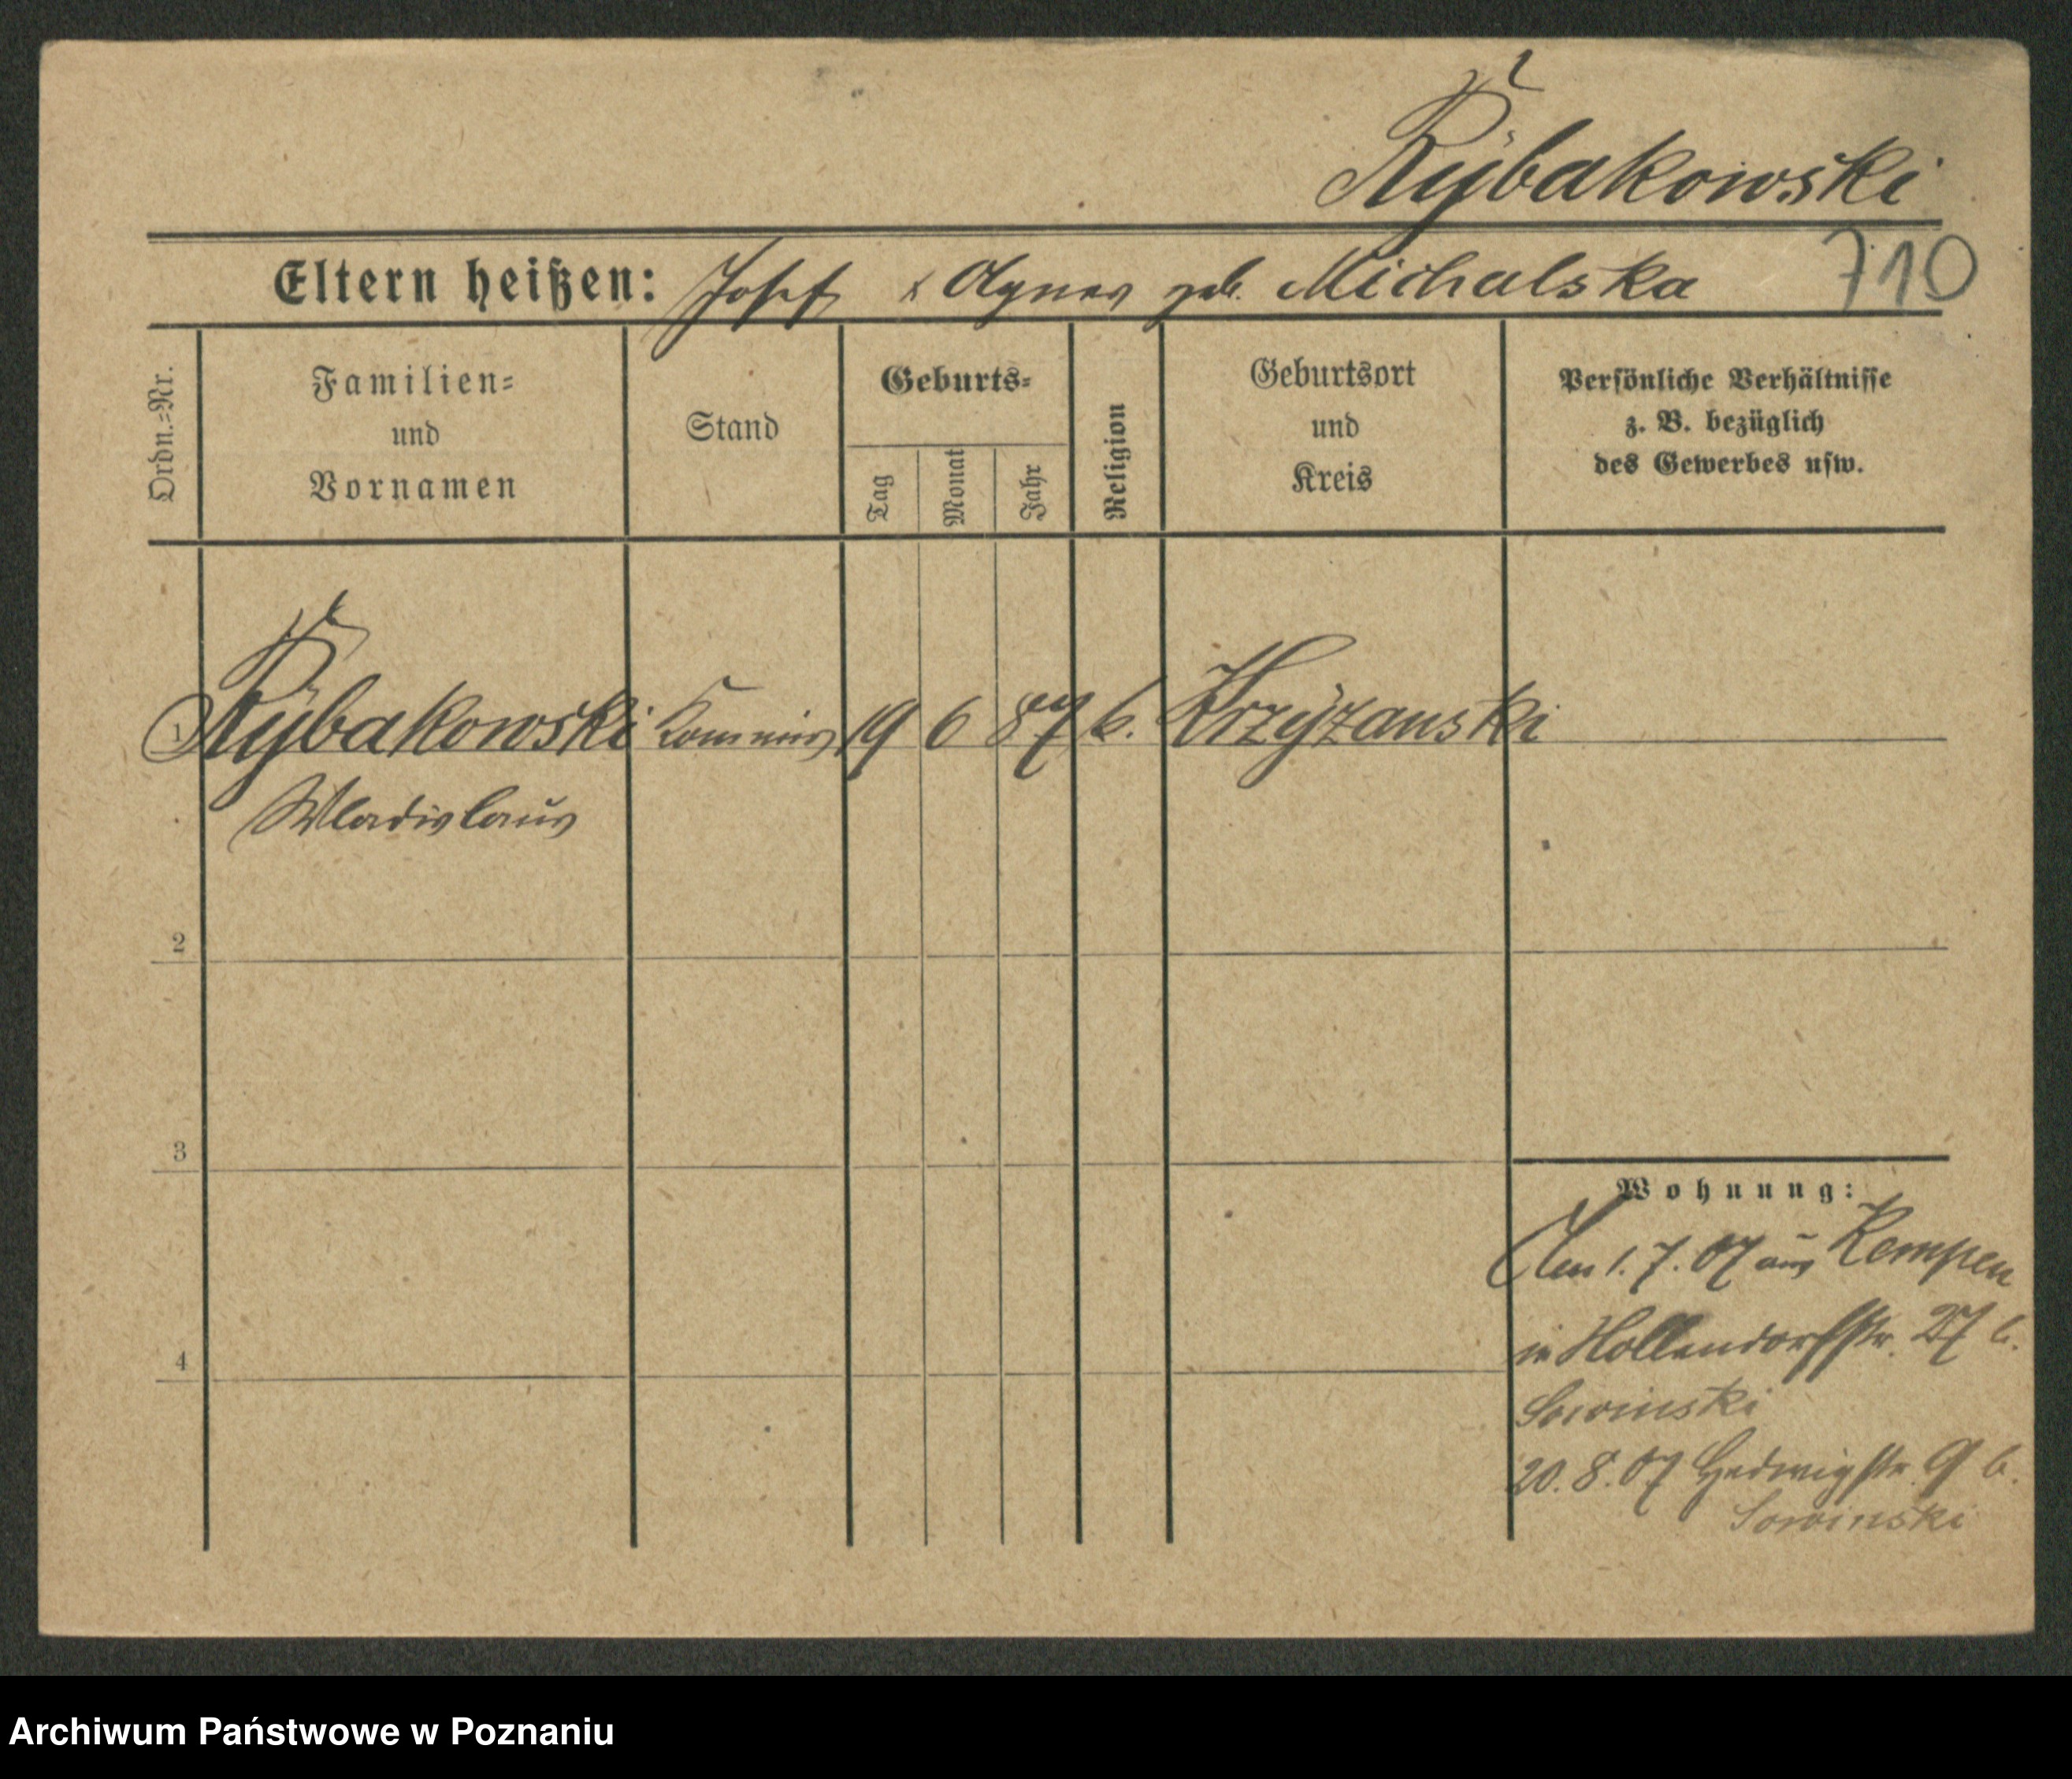 Rÿbakowski
Eltern heißen: Josef & Agnes geb. Michalska 710
Ordn.=Nr.
Familien=
und
Vornamen
Stand
Geburts=
Tag
Monat
Jahr
Religion
Geburtsort
und
Kreis
Persönliche Verhältnisse
z. B. bezüglich
des Gewerbes usw.
1 Rÿbakowski Kommis 19 6 87 k. Krzÿzanski
Wladislaus
2
3
4
Wohnung:
Am 1.7.07 aus Kempen
in Hollendorfstr. 27 b.
Sowinski
20.8.07 Hedwigstr. 9 b.
Sowinski
Archiwum Państwowe w Poznaniu